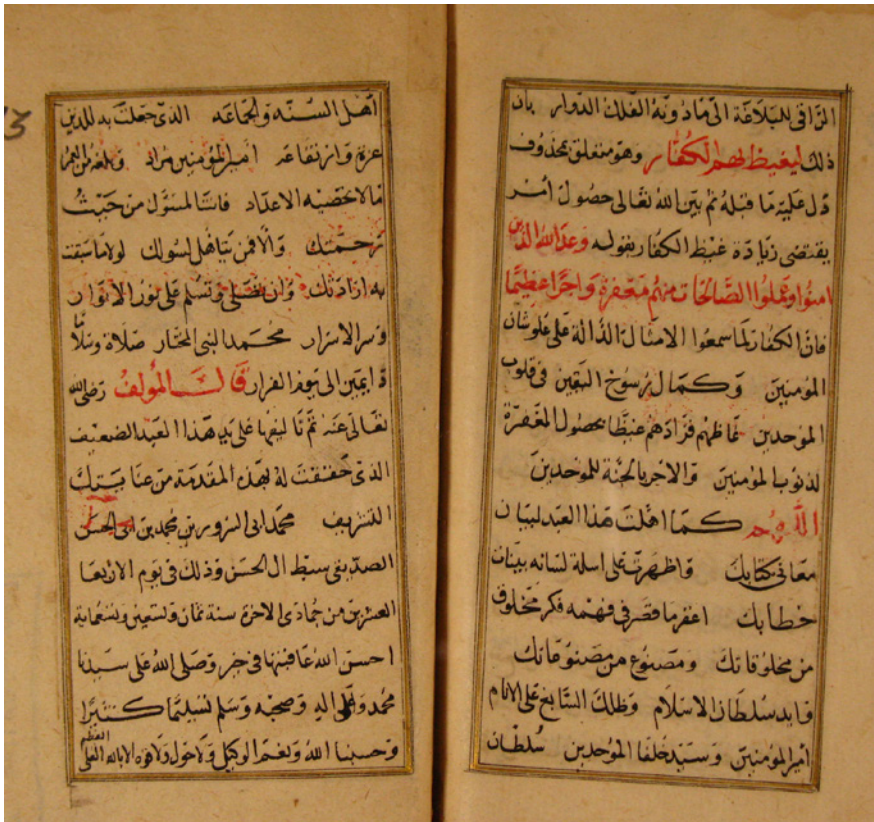 الراقى للبلاغة الى مادونه الفلك الدوار بان
ذلك ليغيظ بهم الكفار وهو متعلق بمحذوف
دل عليه ما قبله ثم بين الله تعالى حصول امر
يقتضى زيادة غيظ الكفار بقوله وعد الله الذين
امنوا وعملوا الصالحات منهم مغفرة واجرا عظيما
فان الكفار لما سمعوا الامثال الدالة على علو شان
المومنين وكمال رسوخ اليقين فى قلوب
الموحدين غاظهم فزادهم غيظا بحصول المغفرة
لذنوب المومنين والاجر بالجنة للموحدين
اللهم كما اهلت هذا العبد لبيان
معانى كتابك واظهرت على اسلة لسانه بينات
خطابك اغفر ما قصر فى فهمه فكر مخلوق
من مخلوقاتك ومصنوع من مصنوعاتك
وايد سلطان الاسلام وظلك السابغ على الانام
امير المومنين وسيد خلفا الموحدين سلطان
اهل السنه والجماعه الذى جعلت به للدين
عزة وارتفاعه امير المؤمنين مراد وبلغه من العمر
ما لا تحصيه الاعداد فانت المسؤل من حيث
رحمتك والا فمن يتاهل لسولك لولا ما سبقت
به ارادتك وان تصلى وتسلم على نور الانوار
وسر الاسرار محمد النبى المختار صلاة وسلاما
دايمين الى يوم القرار قال المولف رضى الله
تعالى عنه تم تاليفها على يد هذا العبد الضعيف
الذى خفقت له بهذه المقدمة من عنايتك
التشريف محمد ابى السرور بن محمد بن ابى الحسن
الصديقى سبط ال الحسن وذلك فى يوم الاربعا
العشرين من جمادى الاخرة سنة ثمان وتسعين وتسعماية
احسن الله عاقبتها فى خير وصلى الله على سيدنا
محمد وعلى اله وصحبه وسلم تسليما كثيرا
وحسبنا الله ونعم الوكيل ولا حول ولا قوة الا بالله العلى العظيم